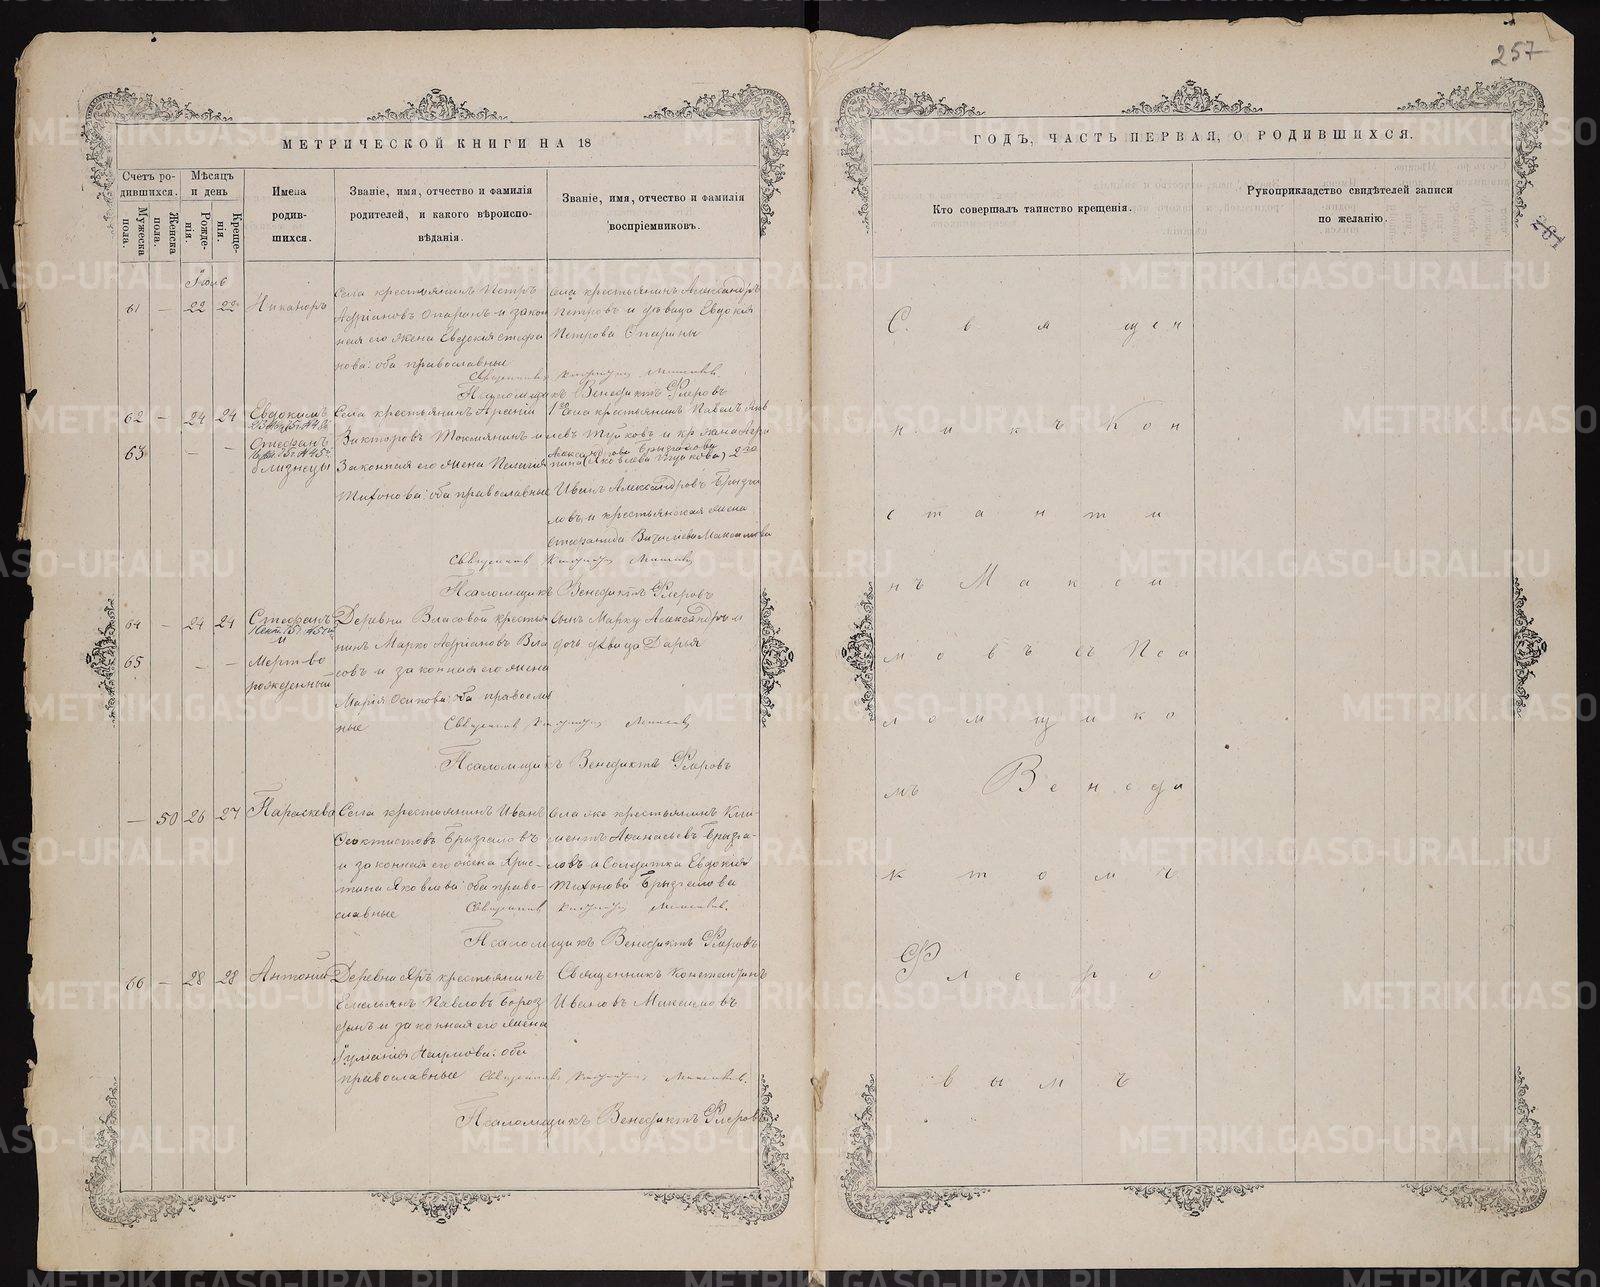 257
МЕТРИЧЕСКОЙ КНИГИ НА 18
Счетъ ро-
дившихся.
Мужеска
пола.
Женска
пола.
Мѣсяцъ
и день
Рожде-
нія.
Креще-
нія.
Имена
родив-
шихся.
Званіе, имя, отчество и фамилія
родителей, и какого вѣроиспо-
вѣданія.
Званіе, имя, отчество и фамилія
воспріемниковъ.
Іюль
61 — 22 22 Никаноръ
Села крестьянинъ Петръ
Адріановъ Опаринъ и закон
ная его жена Евдокія Стефа
нова: оба православные
Села крестьянинъ Александръ
Петровъ и дѣвица Евдокія
Петрова Опарины
Псаломщикъ Венедиктъ Флеровъ
62 — 24 24 Евдокимъ
63 — — Стефанъ
близнецы
Села крестьянинъ Арсеній
Викторовъ и
Законная его жена Пелагія
Тихонова: оба православные
1го Села крестьянинъ Павелъ Яков
левъ и кр. жена Агри
пина (Яковлева) 2го
Иванъ Александровъ Брызга
ловъ и крестьянская жена
Стефанида Максимова
Священникъ
Псаломщикъ Венедиктъ Флеровъ
64 — 24 24 Стефанъ
и
65 — — Мертво
рожденный
Деревни Власовой крестья
нинъ Марко Адріановъ Вла
совъ и законная его жена
Марія Осипова: оба православ
ные
сынъ Марку Александръ и
дочь дѣвица Дарья
Священникъ
Псаломщикъ Венедиктъ Флеровъ
— 50 26 27 Параскева
Села крестьянинъ Иванъ
Феоктистовъ Брызгаловъ
и законная его жена Хрис-
тина Яковлева: оба право-
славные
Села же крестьянинъ Кли-
ментъ Афанасьевъ Брызга-
ловъ и Солдатка Евдокія
Тихонова Брызгалова
Священникъ
Псаломщикъ Венедиктъ Флеровъ
66 — 28 28 Антоній
Деревни Яръ крестьянинъ
Емельянъ Павловъ Бороз
динъ и законная его жена
Іуліанія Наумова: оба
православные
Священникъ Константинъ
Ивановъ Максимовъ
Священникъ
Псаломщикъ Венедиктъ Флеровъ
ГОДЪ, ЧАСТЬ ПЕРВАЯ, О РОДИВШИХСЯ.
Кто совершалъ таинство крещенія.
Рукоприкладство свидѣтелей записи
по желанію.
261
Священ
никъ Кон
станти
нъ Макси
мовъ съ Пса
ломщико
мъ Венеди
ктомъ
Флеро
вымъ
METRIKI.GASO-URAL.RU